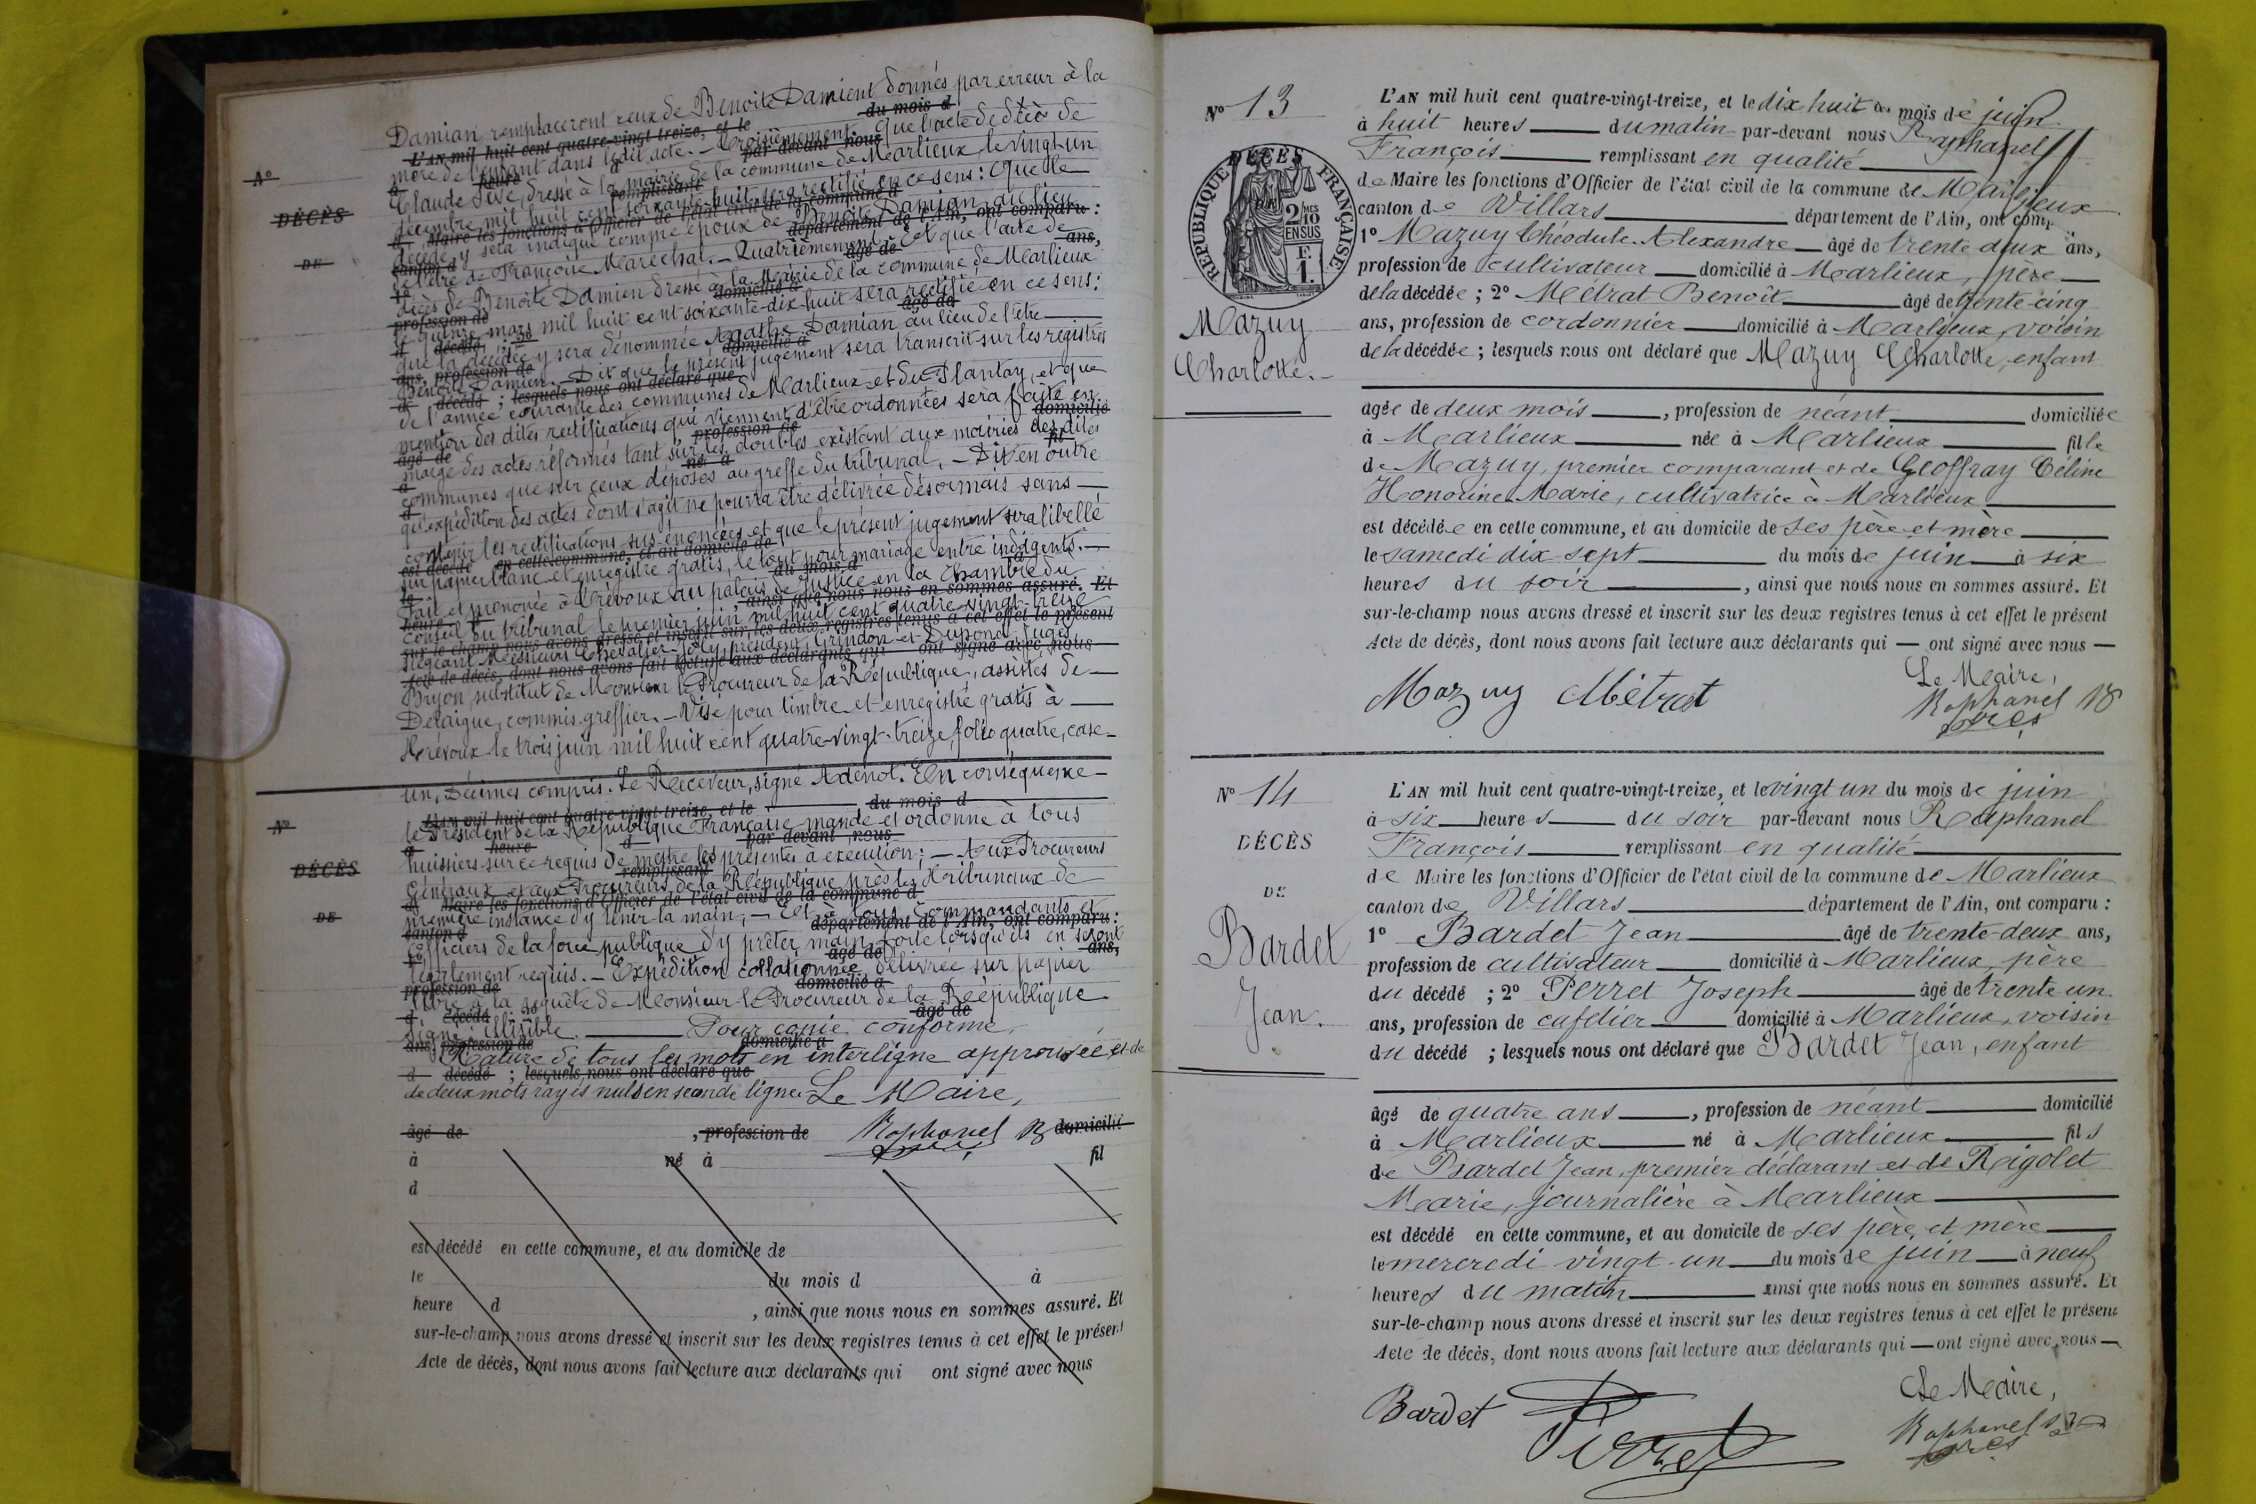 Damian remplaceront ceux de Benoite Damient donnés par erreur à la
L'AN mil huit cent quatre-vingt-treize, et le du mois d
mère de l'enfant dans ledit acte. — Troisièmement que l'acte de décès de
par-devant nous
Claude Sève dressé à la mairie de la commune de Marlieux, le vingt-un
décembre mil huit cent soixante-huit sera rectifié en ce sens : que le
Maire les fonctions d'Officier de l'état civil de la commune d
décédé y sera indiqué comme époux de Benoite Damian, au lieu
département de l'Ain, ont comparu :
de l'être de Françoise Maréchal. — Quatrièmement et que l'acte de
décès de Benoite Damien dressé à la Mairie de la commune de Marlieux
mars mil huit cent soixante-dix-huit sera rectifié en ce sens :
que la décédée y sera dénommée Agathe Damian au lieu de l'être
Benoite Damien. — Dit que le présent jugement sera transcrit sur les registres
de l'année courante des communes de Marlieux et du Plantay, et que
mention des dites rectifications qui viennent d'être ordonnées sera faite en
marge des actes réformés tant sur les doubles existant aux mairies des dites
communes que sur ceux déposés au greffe du tribunal. — Dit en outre
qu'expédition des actes dont s'agit ne pourra être délivrée désormais sans
contenir les rectifications sus-énoncées et que le présent jugement sera libellé
sur papier blanc et enregistré gratis, le tout pour mariage entre indigents. —
Fait et prononcé à Trévoux au palais de Justice en la chambre du
conseil du tribunal le premier juin mil huit cent quatre-vingt-treize
siégeant Messieurs Chevalier-Joly, président, Grindon et Dupond juges
Bryon, substitut de Monsieur le Procureur de la République, assistés de
Delaigue, commis greffier. — Visé pour timbre et enregistré gratis à
Trévoux le trois juin mil huit cent quatre-vingt-treize, folio quatre, case
un, Décimes compris. Le Receveur, signé Adenot. En conséquence
L'AN mil huit cent quatre-vingt-treize, et le du mois d
le Président de la République Française mande et ordonne à tous
huissiers sur ce requis de mettre les présentes à exécution ; — Aux Procureurs
Généraux et aux Procureurs de la République près les Tribunaux de
première instance d'y tenir la main, — Et à tous Commandants et
officiers de la force publique d'y prêter main forte lorsqu'ils en seront
légalement requis. — Expédition collationnée, délivrée sur papier
libre à la requête de Monsieur le Procureur de la République
Signé : illisible. Pour copie conforme,
Rature de tous les mots en interligne approuvée et de
d décédé ; lesquels nous ont déclaré que
de deux mots rayés nuls en seconde ligne. Le Maire,
âgé de , profession de Raphanel domicilié
à né à fil
d
est décédé en cette commune, et au domicile de
le du mois d à
heure d , ainsi que nous nous en sommes assuré. Et
sur-le-champ nous avons dressé et inscrit sur les deux registres tenus à cet effet le présent
Acte de décès, dont nous avons fait lecture aux déclarants qui ont signé avec nous
N°
DÉCÈS
DE
N°
DÉCÈS
DE
N° 13
DÉCÈS
RÉPUBLIQUE FRANÇAISE
2/10 MES
EN SUS
F.
1.
Mazuy
Charlotte. —
L'AN mil huit cent quatre-vingt-treize, et le dix huit du mois de juin
à huit heures du matin par-devant nous Raphanel
François remplissant en qualité
de Maire les fonctions d'Officier de l'état civil de la commune de Marlieux
canton de Villars département de l'Ain, ont comp
1° Mazuy Théodule Alexandre âgé de trente deux ans,
profession de cultivateur domicilié à Marlieux, père
de la décédée ; 2° Métrat Benoît âgé de trente-cinq
ans, profession de cordonnier domicilié à Marlieux, voisin
de la décédée ; lesquels nous ont déclaré que Mazuy Charlotte, enfant
agée de deux mois , profession de néant domiciliée
à Marlieux née à Marlieux fille
de Mazuy, premier comparant et de Geoffray Céline
Honorine Marie, cultivatrice à Marlieux
est décédée en cette commune, et au domicile de ses père et mère
le samedi dix-sept du mois de juin à six
heures du soir , ainsi que nous nous en sommes assuré. Et
sur-le-champ nous avons dressé et inscrit sur les deux registres tenus à cet effet le présent
Acte de décès, dont nous avons fait lecture aux déclarants qui — ont signé avec nous —
Mazuy Métrat Le Maire,
Raphanel
N° 14
DÉCÈS
DE
Bardet
Jean.
L'AN mil huit cent quatre-vingt-treize, et le vingt un du mois de juin
à six heures du soir par-devant nous Raphanel
François remplissant en qualité
de Maire les fonctions d'Officier de l'état civil de la commune de Marlieux
canton de Villars département de l'Ain, ont comparu :
1° Bardet Jean âgé de trente-deux ans,
profession de cultivateur domicilié à Marlieux, père
du décédé ; 2° Perret Joseph âgé de trente un
ans, profession de cafetier domicilié à Marlieux, voisin
du décédé ; lesquels nous ont déclaré que Bardet Jean, enfant
âgé de quatre ans , profession de néant domicilié
à Marlieux né à Marlieux fils
de Bardet Jean, premier déclarant et de Rigolet
Marie, journalière à Marlieux
est décédé en cette commune, et au domicile de ses père et mère
le mercredi vingt-un du mois de juin à neuf
heures du matin ainsi que nous nous en sommes assuré. Et
sur-le-champ nous avons dressé et inscrit sur les deux registres tenus à cet effet le présent
Acte de décès, dont nous avons fait lecture aux déclarants qui — ont signé avec nous —
Bardet Perret Le Maire,
Raphanel